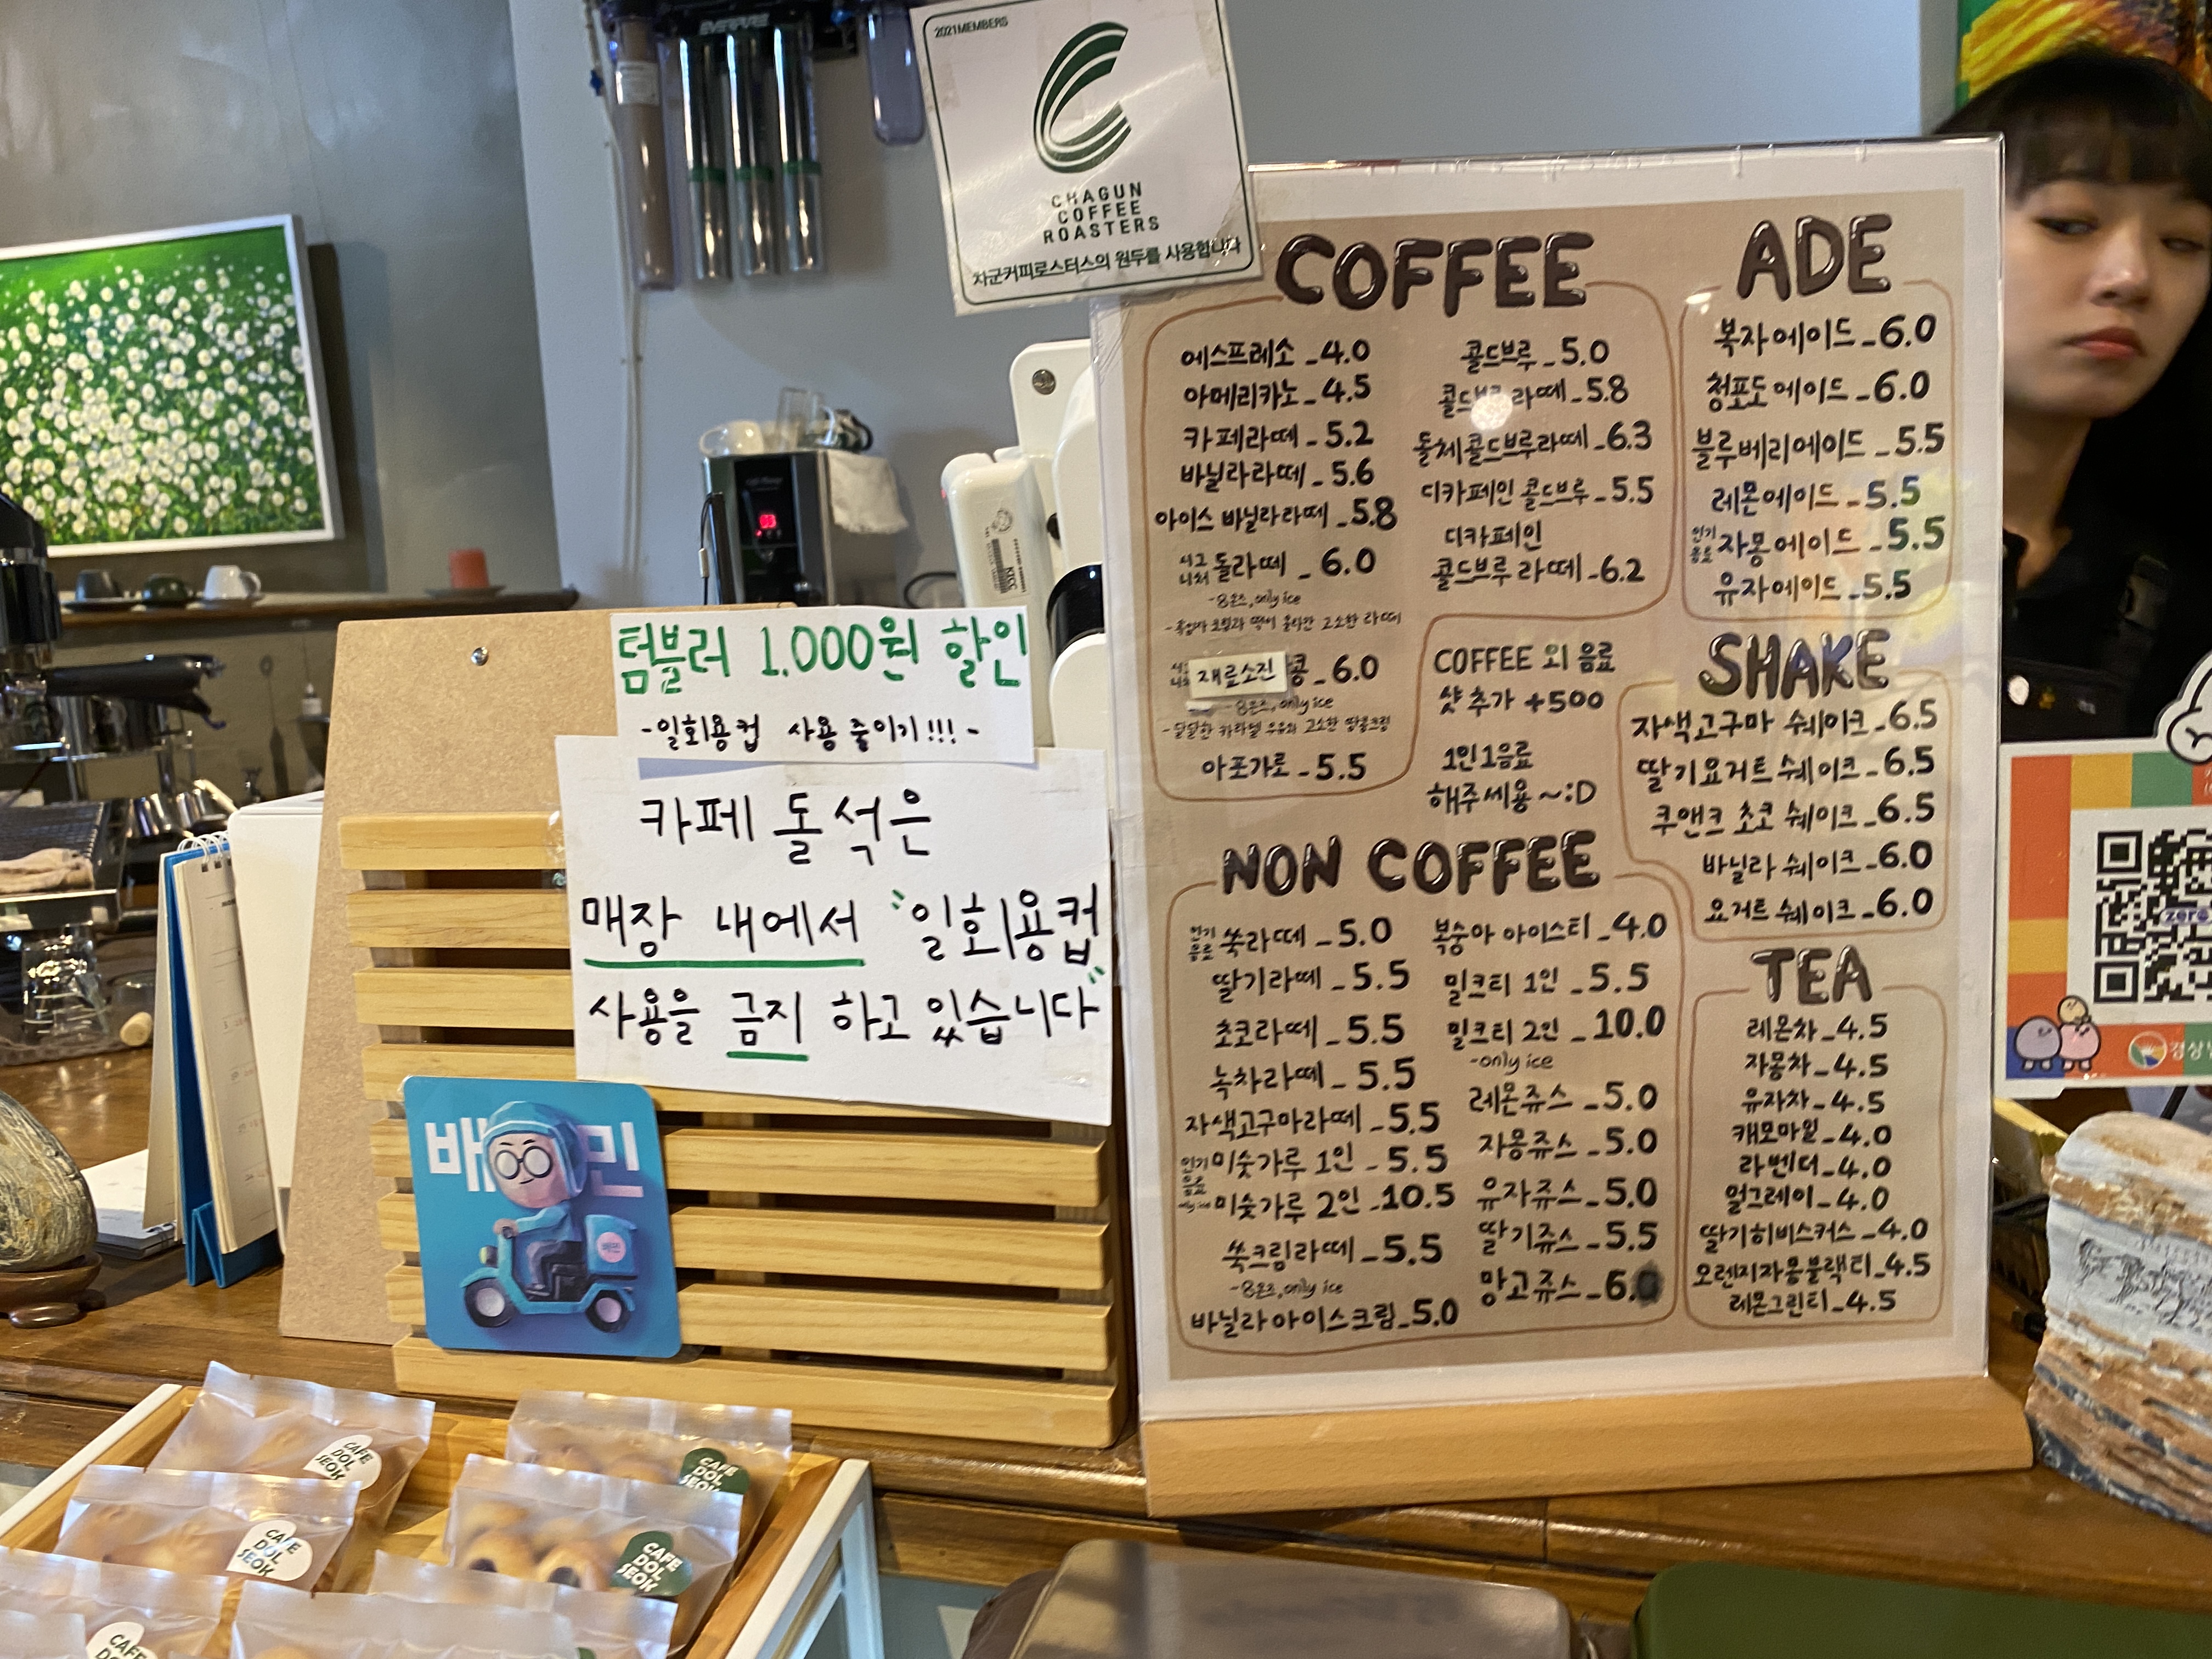 2021 MEMBERS
CHAGUN
COFFEE
ROASTERS
차군커피로스터스의 원두를 사용합니다
EVERPURE
텀블러 1,000원 할인
-일회용컵 사용 줄이기!!!-
카페 돌석은
매장 내에서 "일회용컵"
사용을 금지 하고 있습니다
배민
COFFEE
에스프레소 _4.0
아메리카노 _4.5
카페라떼 - 5.2
바닐라라떼 _ 5.6
아이스 바닐라라떼 _5.8
시그니처 돌라떼 _ 6.0
-8온즈, only ice
-흑임자 크림과 떡이 올라간 고소한 라떼
재료소진 콩 _6.0
-8온즈, only ice
-달달한 카라멜 우유와 고소한 땅콩크림
아포가토 - 5.5
콜드브루 _ 5.0
콜드브루 라떼 _5.8
돌체콜드브루라떼 _6.3
디카페인 콜드브루 _5.5
디카페인
콜드브루 라떼 -6.2
COFFEE 외 음료
샷 추가 +500
1인 1음료
해주세용~:D
ADE
복자에이드_6.0
청포도에이드_6.0
블루베리에이드 _5.5
레몬에이드 _5.5
인기음료 자몽에이드 _5.5
유자에이드 _5.5
SHAKE
자색고구마 쉐이크 _6.5
딸기요거트 쉐이크 _6.5
쿠앤크 초코 쉐이크_6.5
바닐라 쉐이크 _6.0
요거트 쉐이크 _6.0
NON COFFEE
인기음료 쑥라떼 _5.0
딸기라떼 _ 5.5
초코라떼 _ 5.5
녹차라떼 _ 5.5
자색고구마라떼 _5.5
인기음료 미숫가루 1인 - 5.5
only ice 미숫가루 2인 _10.5
쑥크림라떼 _5.5
-8온즈, only ice
바닐라아이스크림_5.0
복숭아 아이스티 _4.0
밀크티 1인 _5.5
밀크티 2인 _10.0
-only ice
레몬쥬스 _5.0
자몽쥬스 _5.0
유자쥬스_5.0
딸기쥬스_5.5
망고쥬스 _6.0
TEA
레몬차_4.5
자몽차_4.5
유자차_4.5
캐모마일_4.0
라벤더_4.0
얼그레이_4.0
딸기히비스커스_4.0
오렌지자몽블랙티_4.5
레몬그린티_4.5
zero
경상
CAFE
DOL
SEOK
CAFE
DOL
SEOK
CAFE
DOL
SEOK
CAFE
DOL
SEOK
CAFE
DOL